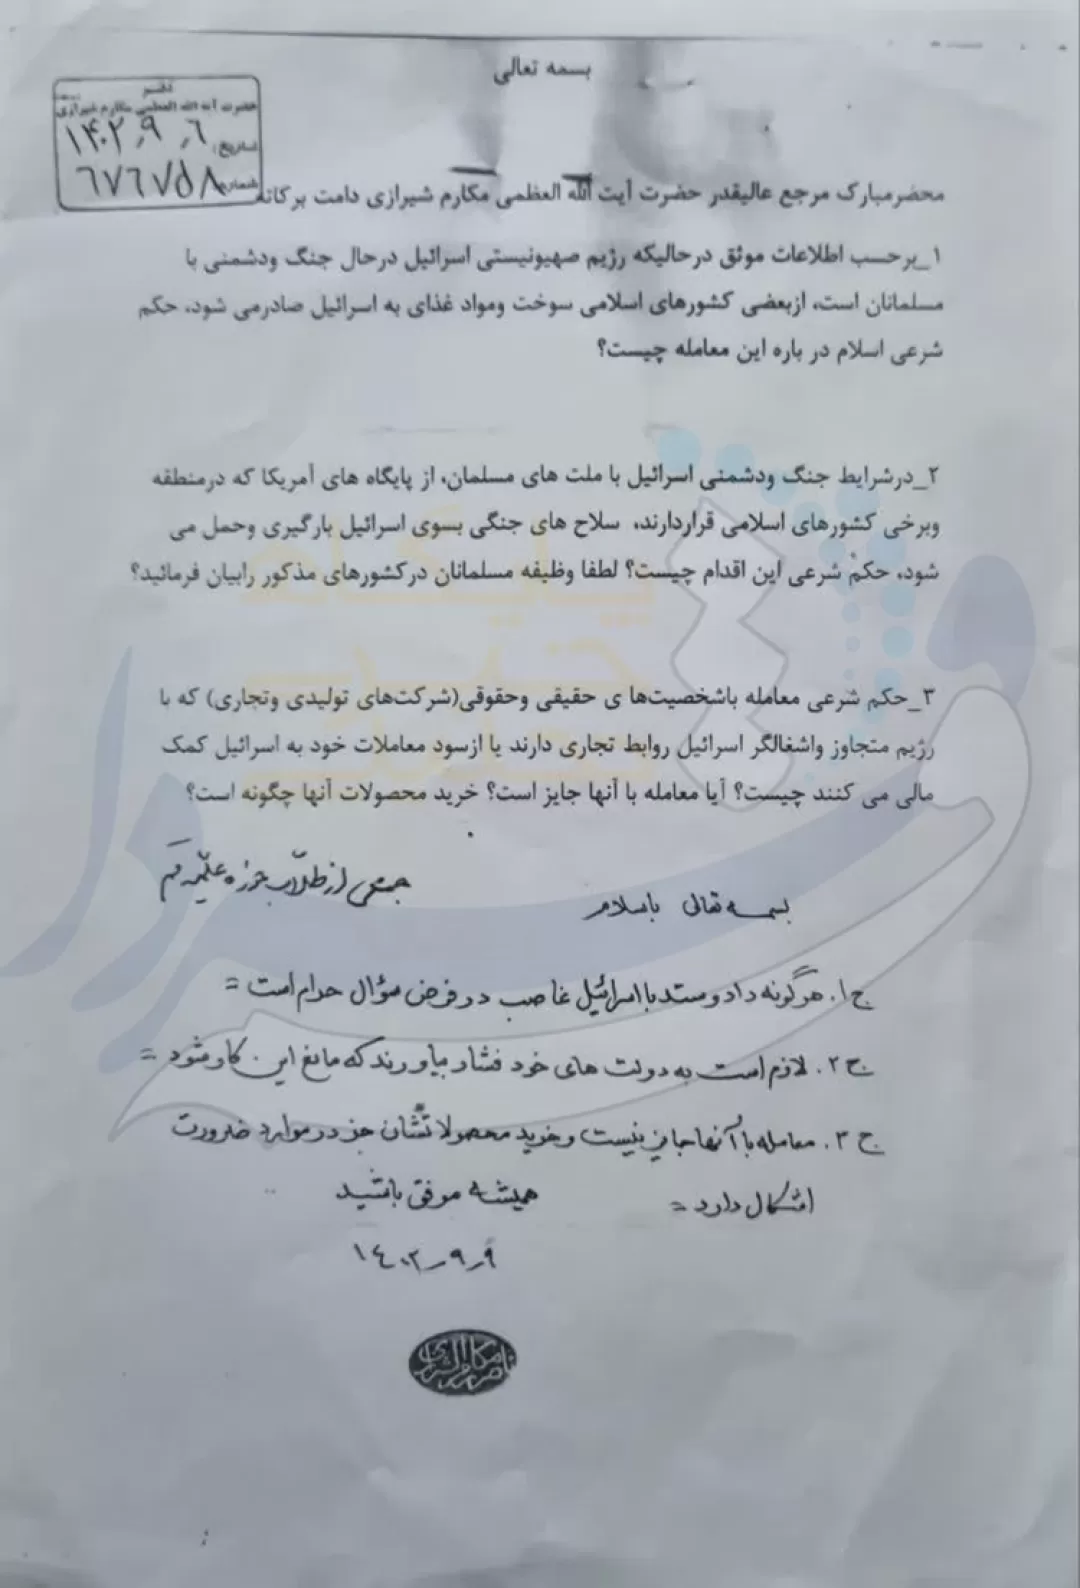 بسمه تعالی
دفتر
حضرت آیة الله العظمی مکارم شیرازی
تاریخ: ۱۴۰۲٫۹٫۶
شماره ۶۷۶۷۵۸
محضرمبارک مرجع عالیقدر حضرت آیت الله العظمی مکارم شیرازی دامت برکاته
۱_برحسب اطلاعات موثق درحالیکه رژیم صهیونیستی اسرائیل درحال جنگ ودشمنی با
مسلمانان است، ازبعضی کشورهای اسلامی سوخت ومواد غذای به اسرائیل صادرمی شود، حکم
شرعی اسلام در باره این معامله چیست؟
۲_درشرایط جنگ ودشمنی اسرائیل با ملت های مسلمان، از پایگاه های آمریکا که درمنطقه
وبرخی کشورهای اسلامی قراردارند، سلاح های جنگی بسوی اسرائیل بارگیری وحمل می
شود، حکم شرعی این اقدام چیست؟ لطفا وظیفه مسلمانان درکشورهای مذکور رابیان فرمائید؟
۳_حکم شرعی معامله باشخصیت‌ها ی حقیقی وحقوقی(شرکت‌های تولیدی وتجاری) که با
رژیم متجاوز واشغالگر اسرائیل روابط تجاری دارند یا ازسود معاملات خود به اسرائیل کمک
مالی می کنند چیست؟ آیا معامله با آنها جایز است؟ خرید محصولات آنها چگونه است؟
جمعی از طلّاب حوزه علمیه قم
بسمه تعالی باسلام
ج۱. هرگونه داد و ستد با اسرائیل غاصب در فرض سؤال حرام است =
ج۲. لازم است به دولت های خود فشار بیاورند که مانع این کار شود =
ج۳. معامله با آنها جایز نیست و خرید محصولاتشان جز در موارد ضرورت
اشکال دارد =
همیشه موفق باشید
۱۴۰۲٫۹٫۹
ناصر مکارم الشیرازی
پایگاه
خبری
فردا